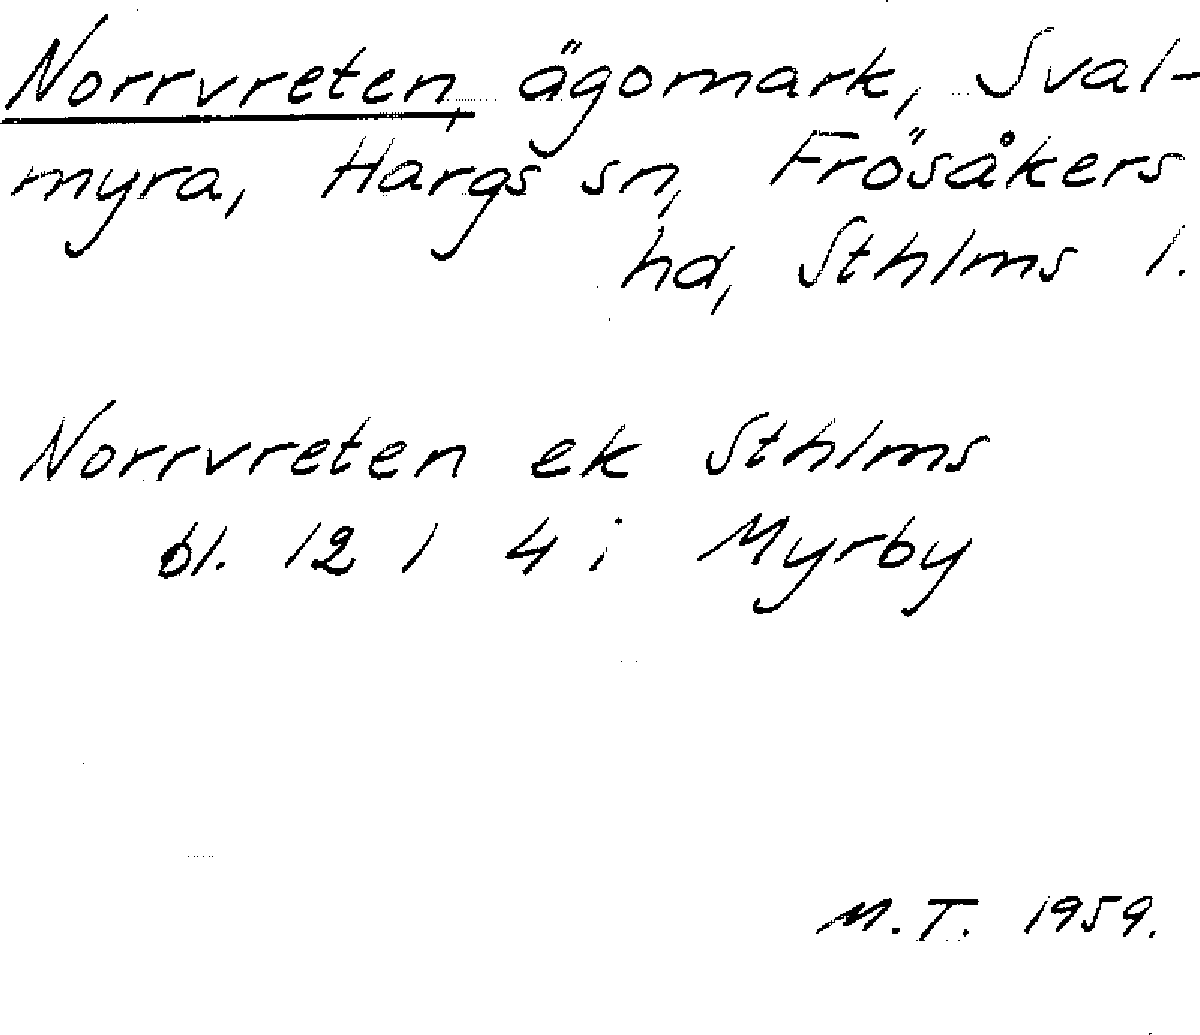 Norrvreten, ägomark, Sval-
myra, Hargs sn, Frösåkers
hd, Sthlms l.
Norrvreten ek Sthlms
bl. 12 1 4 i Myrby
M.T. 1959.